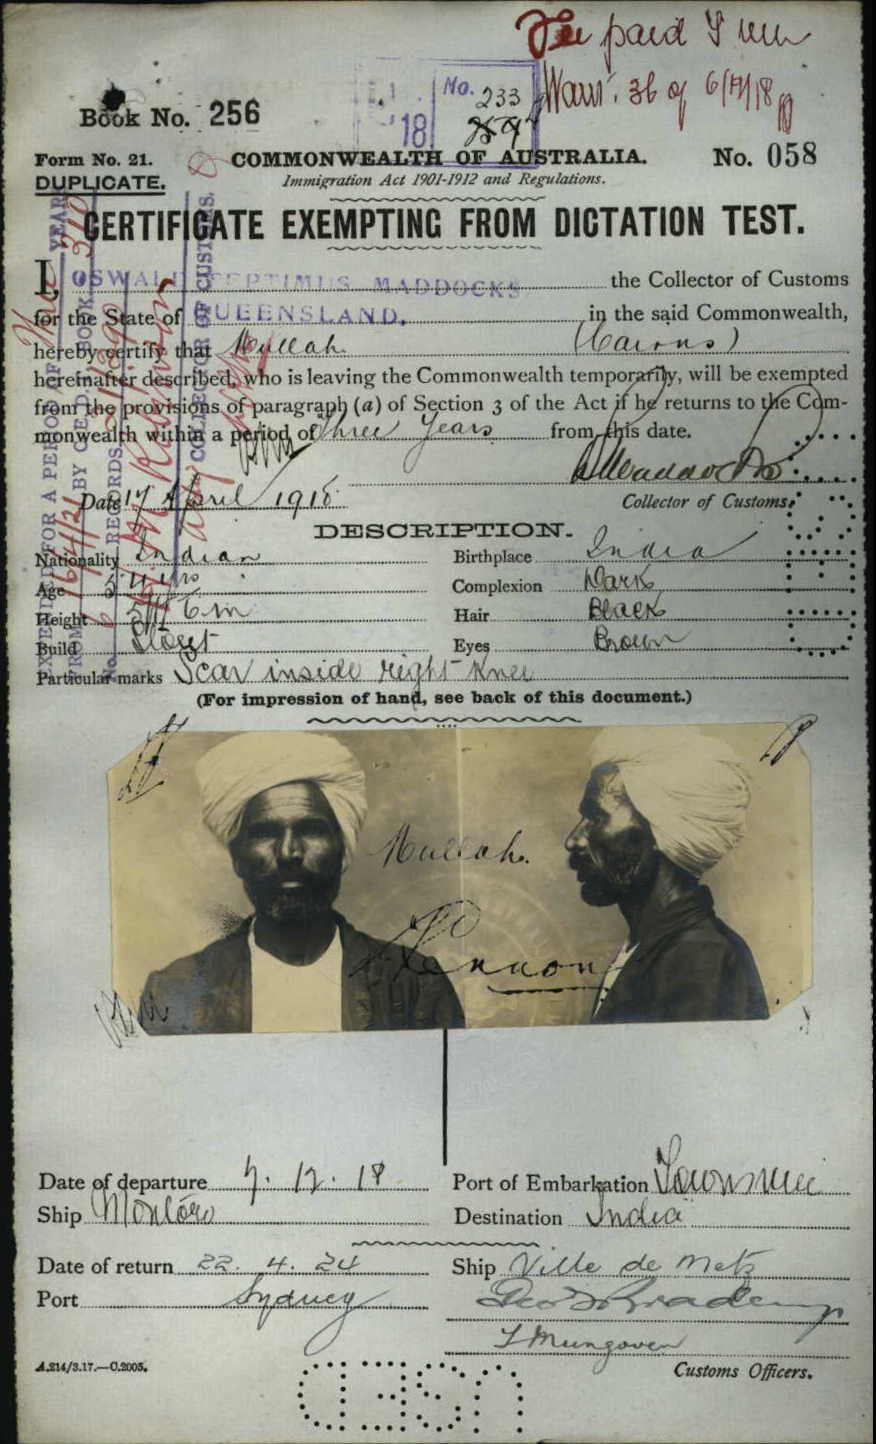 Fee paid
No. 233
Book No. 256
'18
Form No. 21.
COMMONWEALTH OF AUSTRALIA.
No. 058
DUPLICATE.
Immigration Act 1901-1912 and Regulations.
CERTIFICATE EXEMPTING FROM DICTATION TEST.
I, OSWALD SEPTIMUS MADDOCKS the Collector of Customs
for the State of QUEENSLAND. in the said Commonwealth,
hereby certify that Mullah. (Cairns)
hereinafter described, who is leaving the Commonwealth temporarily, will be exempted
from the provisions of paragraph (a) of Section 3 of the Act if he returns to the Com-
monwealth within a period of three years from this date.
Date 17 April 1918
Collector of Customs.
EXTENDED FOR A PERIOD OF YEARS
FROM 16/4/21 BY C. & E. D. BOOK
No. RECORDS.
COLLECTOR OF CUSTOMS.
DESCRIPTION.
Nationality Indian
Birthplace India
Age
Complexion Dark
Height 5 ft 6 in
Hair Black
Build Stout
Eyes Brown
Particular marks Scar inside right knee
(For impression of hand, see back of this document.)
Mullah.
Date of departure 7. 12. 18
Port of Embarkation Townsville
Ship Montoro
Destination India
Date of return 22. 4. 24
Ship Ville de Metz
Port Sydney
Customs Officers.
A.214/3.17.—C.2005.
USED